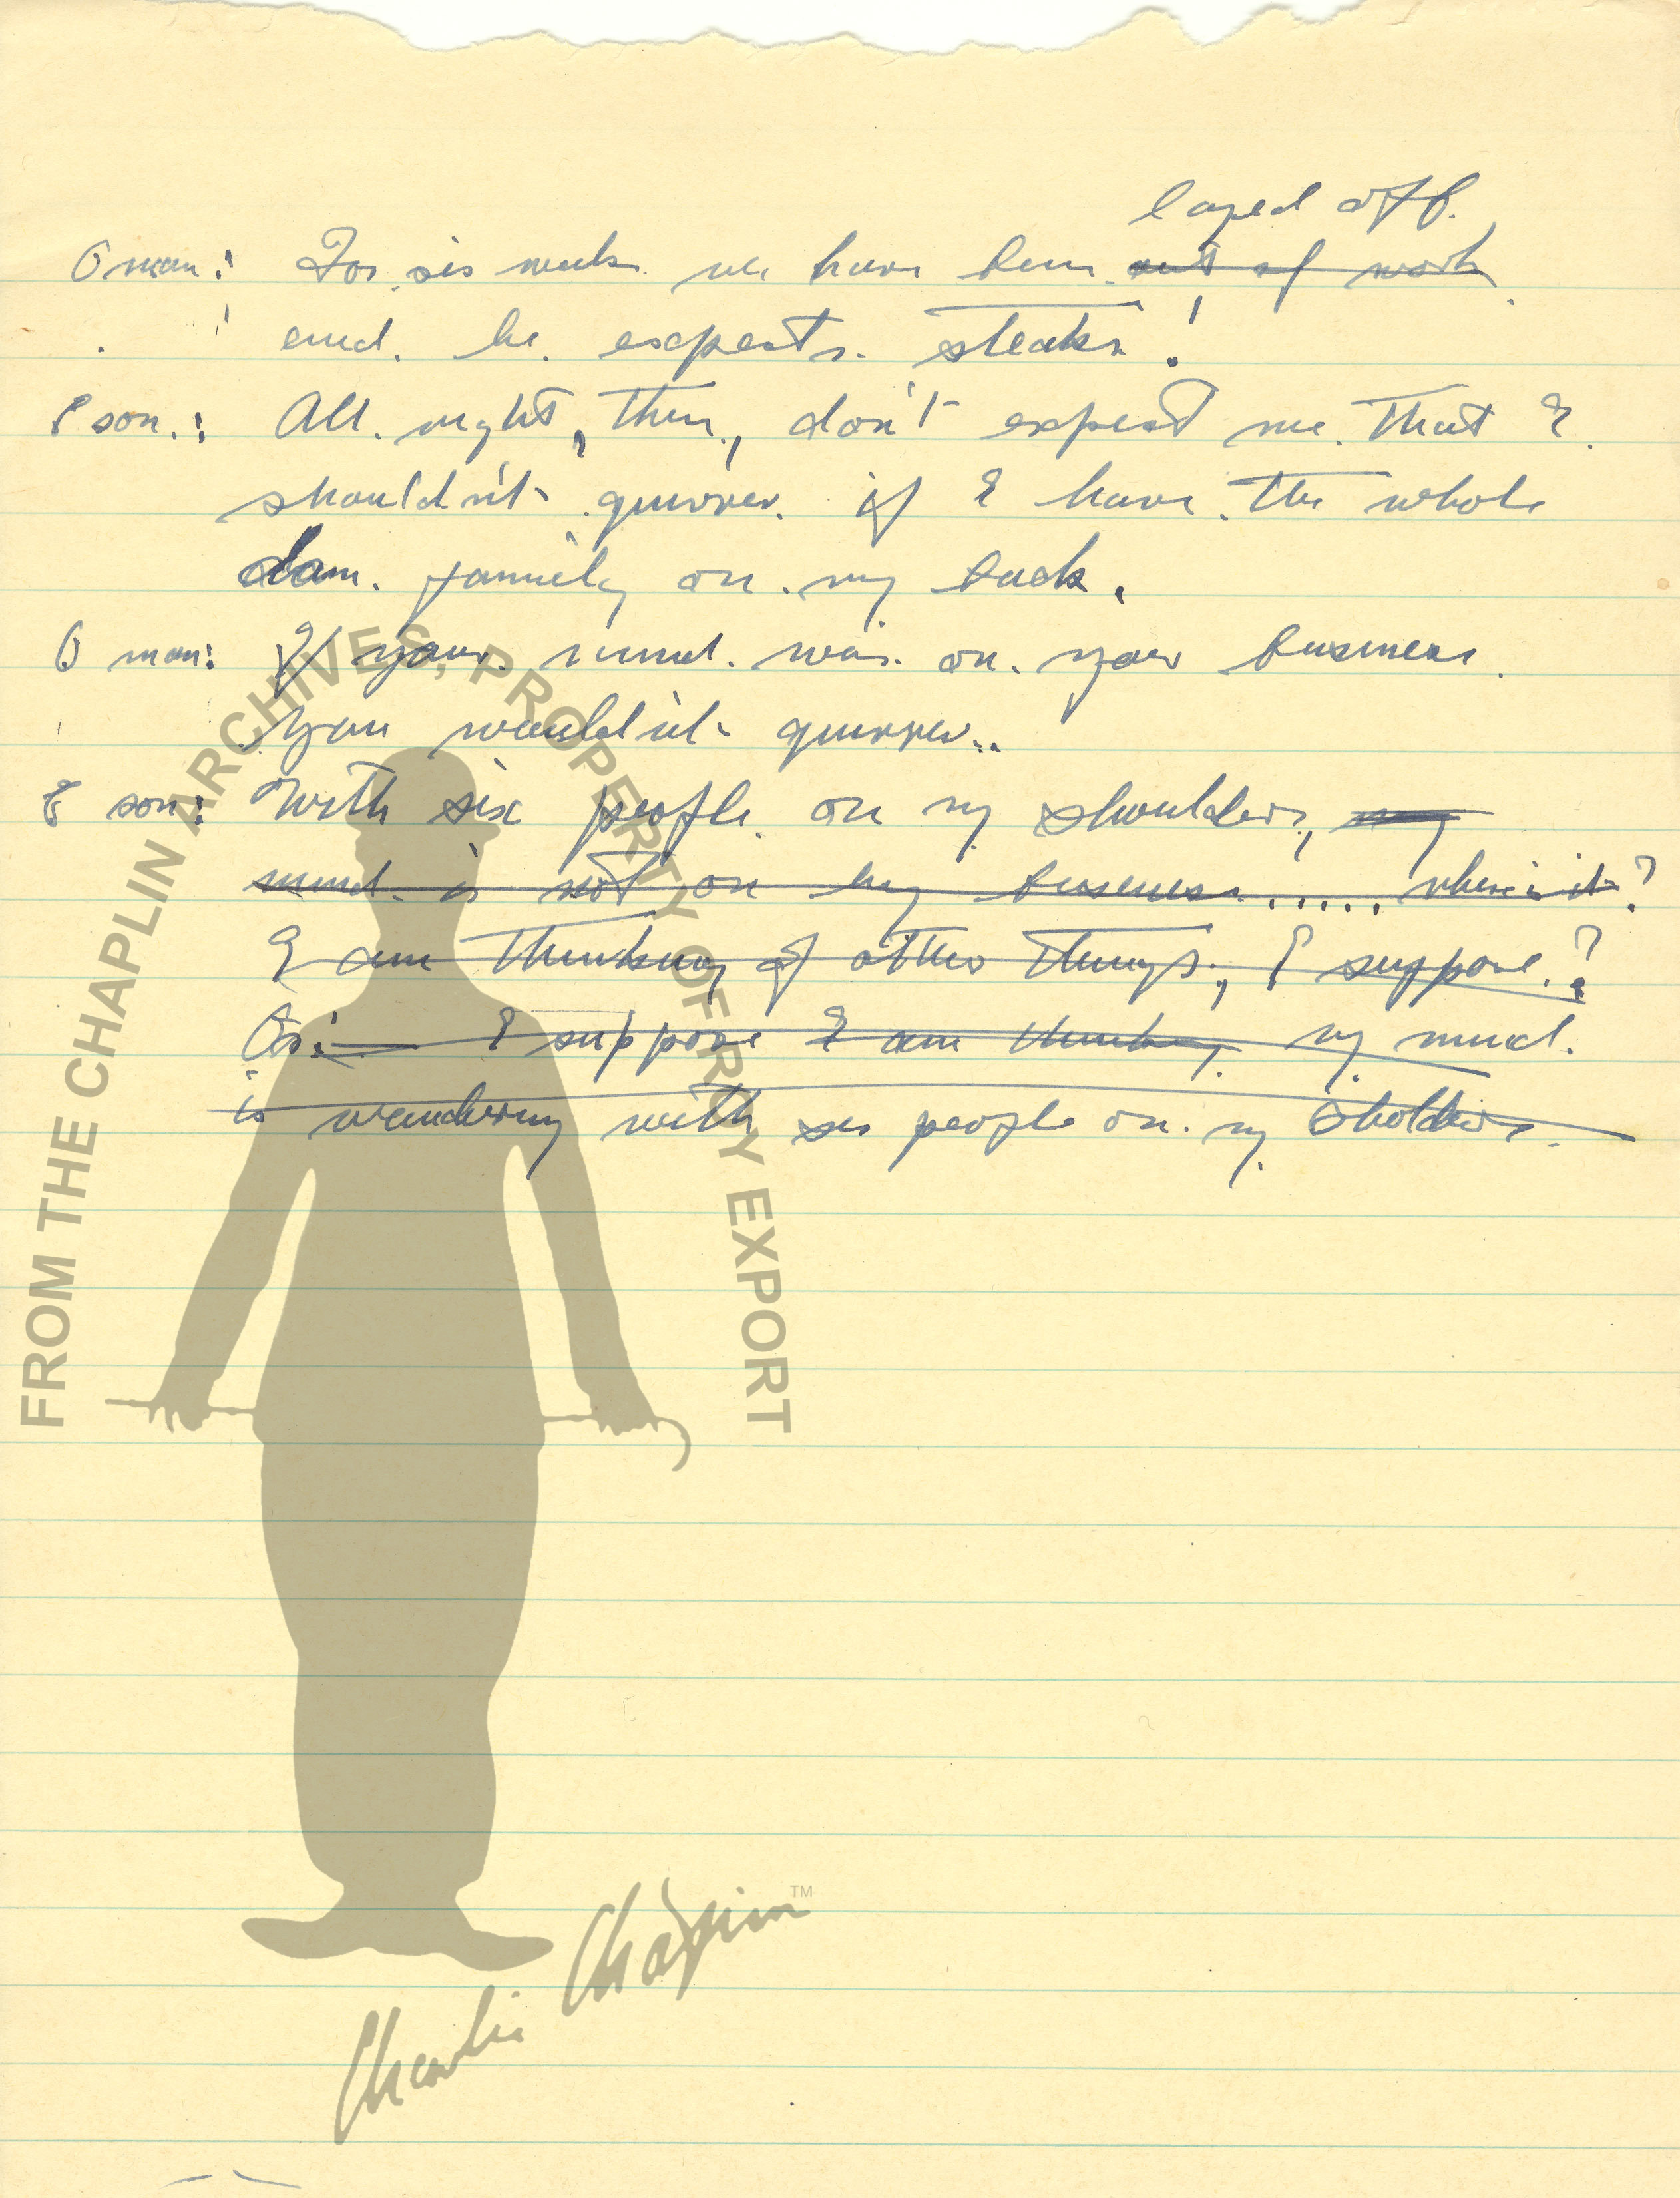 layed off.
O man: For six weeks we have been out of work
and he expects steaks!
E son: All right, then, don't expect me that I
shouldn't quiver if I have the whole
dam family on my back.
O man: If your mind was on your business
you wouldn't quiver..
E son: With six people on my shoulders, my
mind is not on my business..... where is it?
I am thinking of other things, I suppose?
Os: I suppose I am thinking my mind
is wandering with six people on my sholders.
FROM THE CHAPLIN ARCHIVES, PROPERTY OF ROY EXPORT
Charlie Chaplin TM